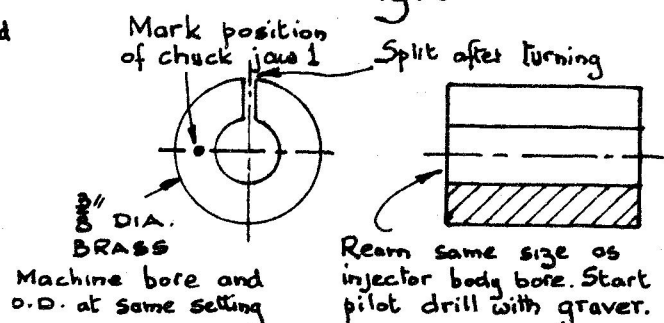 Mark position
of chuck jaw 1
Split after turning
3/8" DIA.
BRASS
Machine bore and
O.D. at same setting
Ream same size as
injector body bore. Start
pilot drill with graver.